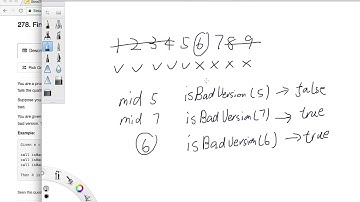 278. Fin
Descri
Pick O
You are a pro
fails the quali
Suppose you
bad.
You are given
bad version.
Example:
Given n =
call isBa
call isBa
call isBa
Then 4 is
1 2 3 4 5 6 7 8 9
✓ ✓ ✓ ✓ ✓ X X X X
mid 5 isBadVersion(5) → false
mid 7 isBadVersion(7) → true
6 isBadVersion(6) → true